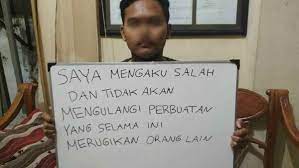 SAYA MENGAKU SALAH
DAN TIDAK AKAN
MENGULANGI PERBUATAN
YANG SELAMA INI
MERUGIKAN ORANG LAIN